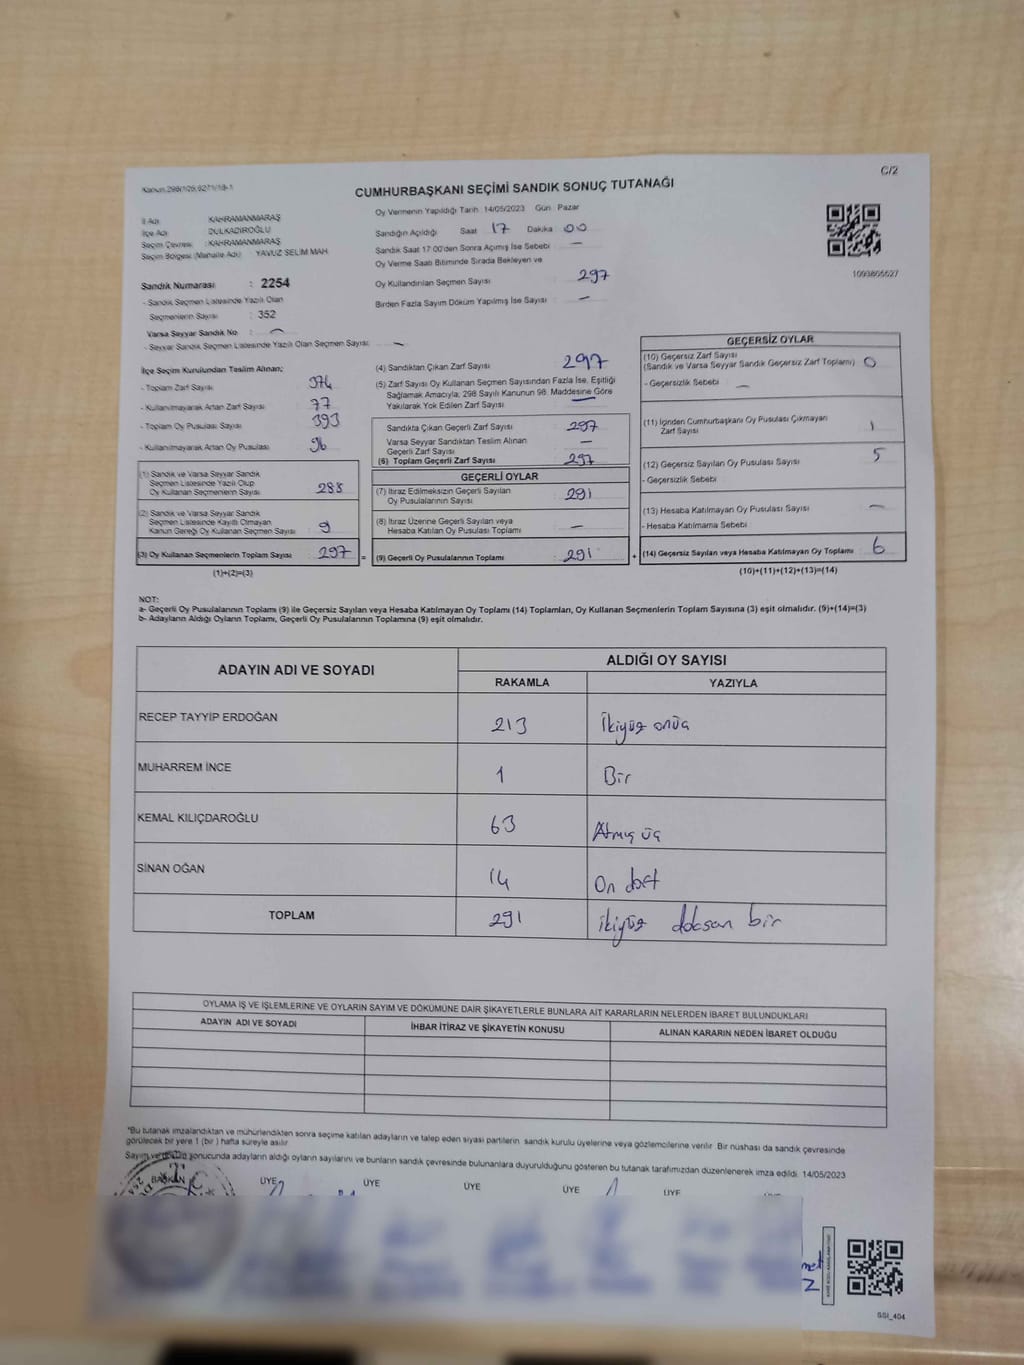 Kanun.298/105,6271/18-1
C/2
CUMHURBAŞKANI SEÇİMİ SANDIK SONUÇ TUTANAĞI
İl Adı : KAHRAMANMARAŞ
İlçe Adı : DULKADİROĞLU
Seçim Çevresi : KAHRAMANMARAŞ
Seçim Bölgesi (Mahalle Adı) : YAVUZ SELİM MAH
Sandık Numarası : 2254
- Sandık Seçmen Listesinde Yazılı Olan
Seçmenlerin Sayısı : 352
Varsa Seyyar Sandık No : —
- Seyyar Sandık Seçmen Listesinde Yazılı Olan Seçmen Sayısı: —
Oy Vermenin Yapıldığı Tarih 14/05/2023 Gün Pazar
Sandığın Açıldığı Saat 17 Dakika 00
Sandık Saat 17:00'den Sonra Açımış İse Sebebi —
Oy Verme Saati Bitiminde Sırada Bekleyen ve
Oy Kullandırılan Seçmen Sayısı 297
Birden Fazla Sayım Döküm Yapılmış İse Sayısı —
1093805527
İlçe Seçim Kurulundan Teslim Alınan;
- Toplam Zarf Sayısı 374
- Kullanılmayarak Artan Zarf Sayısı 77
- Toplam Oy Pusulası Sayısı 393
- Kullanılmayarak Artan Oy Pusulası 96
(1) Sandık ve Varsa Seyyar Sandık
Seçmen Listesinde Yazılı Olup
Oy Kullanan Seçmenlerin Sayısı 288
(2) Sandık ve Varsa Seyyar Sandık
Seçmen Listesinde Kayıtlı Olmayan
Kanun Gereği Oy Kullanan Seçmen Sayısı 9
(3) Oy Kullanan Seçmenlerin Toplam Sayısı 297 =
(1)+(2)=(3)
(4) Sandıktan Çıkan Zarf Sayısı 297
(5) Zarf Sayısı Oy Kullanan Seçmen Sayısından Fazla İse, Eşitliği
Sağlamak Amacıyla, 298 Sayılı Kanunun 98. Maddesine Göre
Yakılarak Yok Edilen Zarf Sayısı —
Sandıkta Çıkan Geçerli Zarf Sayısı 297
Varsa Seyyar Sandıktan Teslim Alınan
Geçerli Zarf Sayısı —
(6) Toplam Geçerli Zarf Sayısı 297
GEÇERLİ OYLAR
(7) İtiraz Edilmeksizin Geçerli Sayılan
Oy Pusulalarının Sayısı 291
(8) İtiraz Üzerine Geçerli Sayılan veya
Hesaba Katılan Oy Pusulası Toplamı —
(9) Geçerli Oy Pusulalarının Toplamı 291 +
GEÇERSİZ OYLAR
(10) Geçersiz Zarf Sayısı
(Sandık ve Varsa Seyyar Sandık Geçersiz Zarf Toplamı) 0
- Geçersizlik Sebebi —
(11) İçinden Cumhurbaşkanı Oy Pusulası Çıkmayan
Zarf Sayısı 1
(12) Geçersiz Sayılan Oy Pusulası Sayısı 5
- Geçersizlik Sebebi
(13) Hesaba Katılmayan Oy Pusulası Sayısı —
- Hesaba Katılmama Sebebi
(14) Geçersiz Sayılan veya Hesaba Katılmayan Oy Toplamı 6
(10)+(11)+(12)+(13)=(14)
NOT:
a- Geçerli Oy Pusulalarının Toplamı (9) ile Geçersiz Sayılan veya Hesaba Katılmayan Oy Toplamı (14) Toplamları, Oy Kullanan Seçmenlerin Toplam Sayısına (3) eşit olmalıdır. (9)+(14)=(3)
b- Adayların Aldığı Oyların Toplamı, Geçerli Oy Pusulalarının Toplamına (9) eşit olmalıdır.
ADAYIN ADI VE SOYADI
ALDIĞI OY SAYISI
RAKAMLA YAZIYLA
RECEP TAYYİP ERDOĞAN 213 İkiyüz onüç
MUHARREM İNCE 1 Bir
KEMAL KILIÇDAROĞLU 63 Atmış üç
SİNAN OĞAN 14 On dört
TOPLAM 291 ikiyüz doksan bir
OYLAMA İŞ VE İŞLEMLERİNE VE OYLARIN SAYIM VE DÖKÜMÜNE DAİR ŞİKAYETLERLE BUNLARA AİT KARARLARIN NELERDEN İBARET BULUNDUKLARI
ADAYIN ADI VE SOYADI İHBAR İTİRAZ VE ŞİKAYETİN KONUSU ALINAN KARARIN NEDEN İBARET OLDUĞU
*Bu tutanak imzalandıktan ve mühürlendikten sonra seçime katılan adayların ve talep eden siyasi partilerin sandık kurulu üyelerine veya gözlemcilerine verilir. Bir nüshası da sandık çevresinde
görülecek bir yere 1 (bir) hafta süreyle asılır
Sayım ve döküm sonucunda adayların aldığı oyların sayılarını ve bunların sandık çevresinde bulunanlara duyurulduğunu gösteren bu tutanak tarafımızdan düzenlenerek imza edildi. 14/05/2023
BAŞKAN ÜYE ÜYE ÜYE ÜYE ÜYE
T.C.
SSI_404